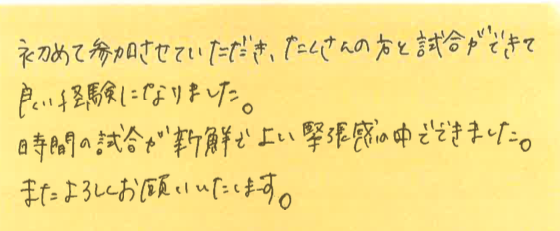 初めて参加させていただき、たくさんの方と試合ができて
良い経験になりました。
時間の試合が新鮮でよい緊張感の中でできました。
またよろしくお願いいたします。